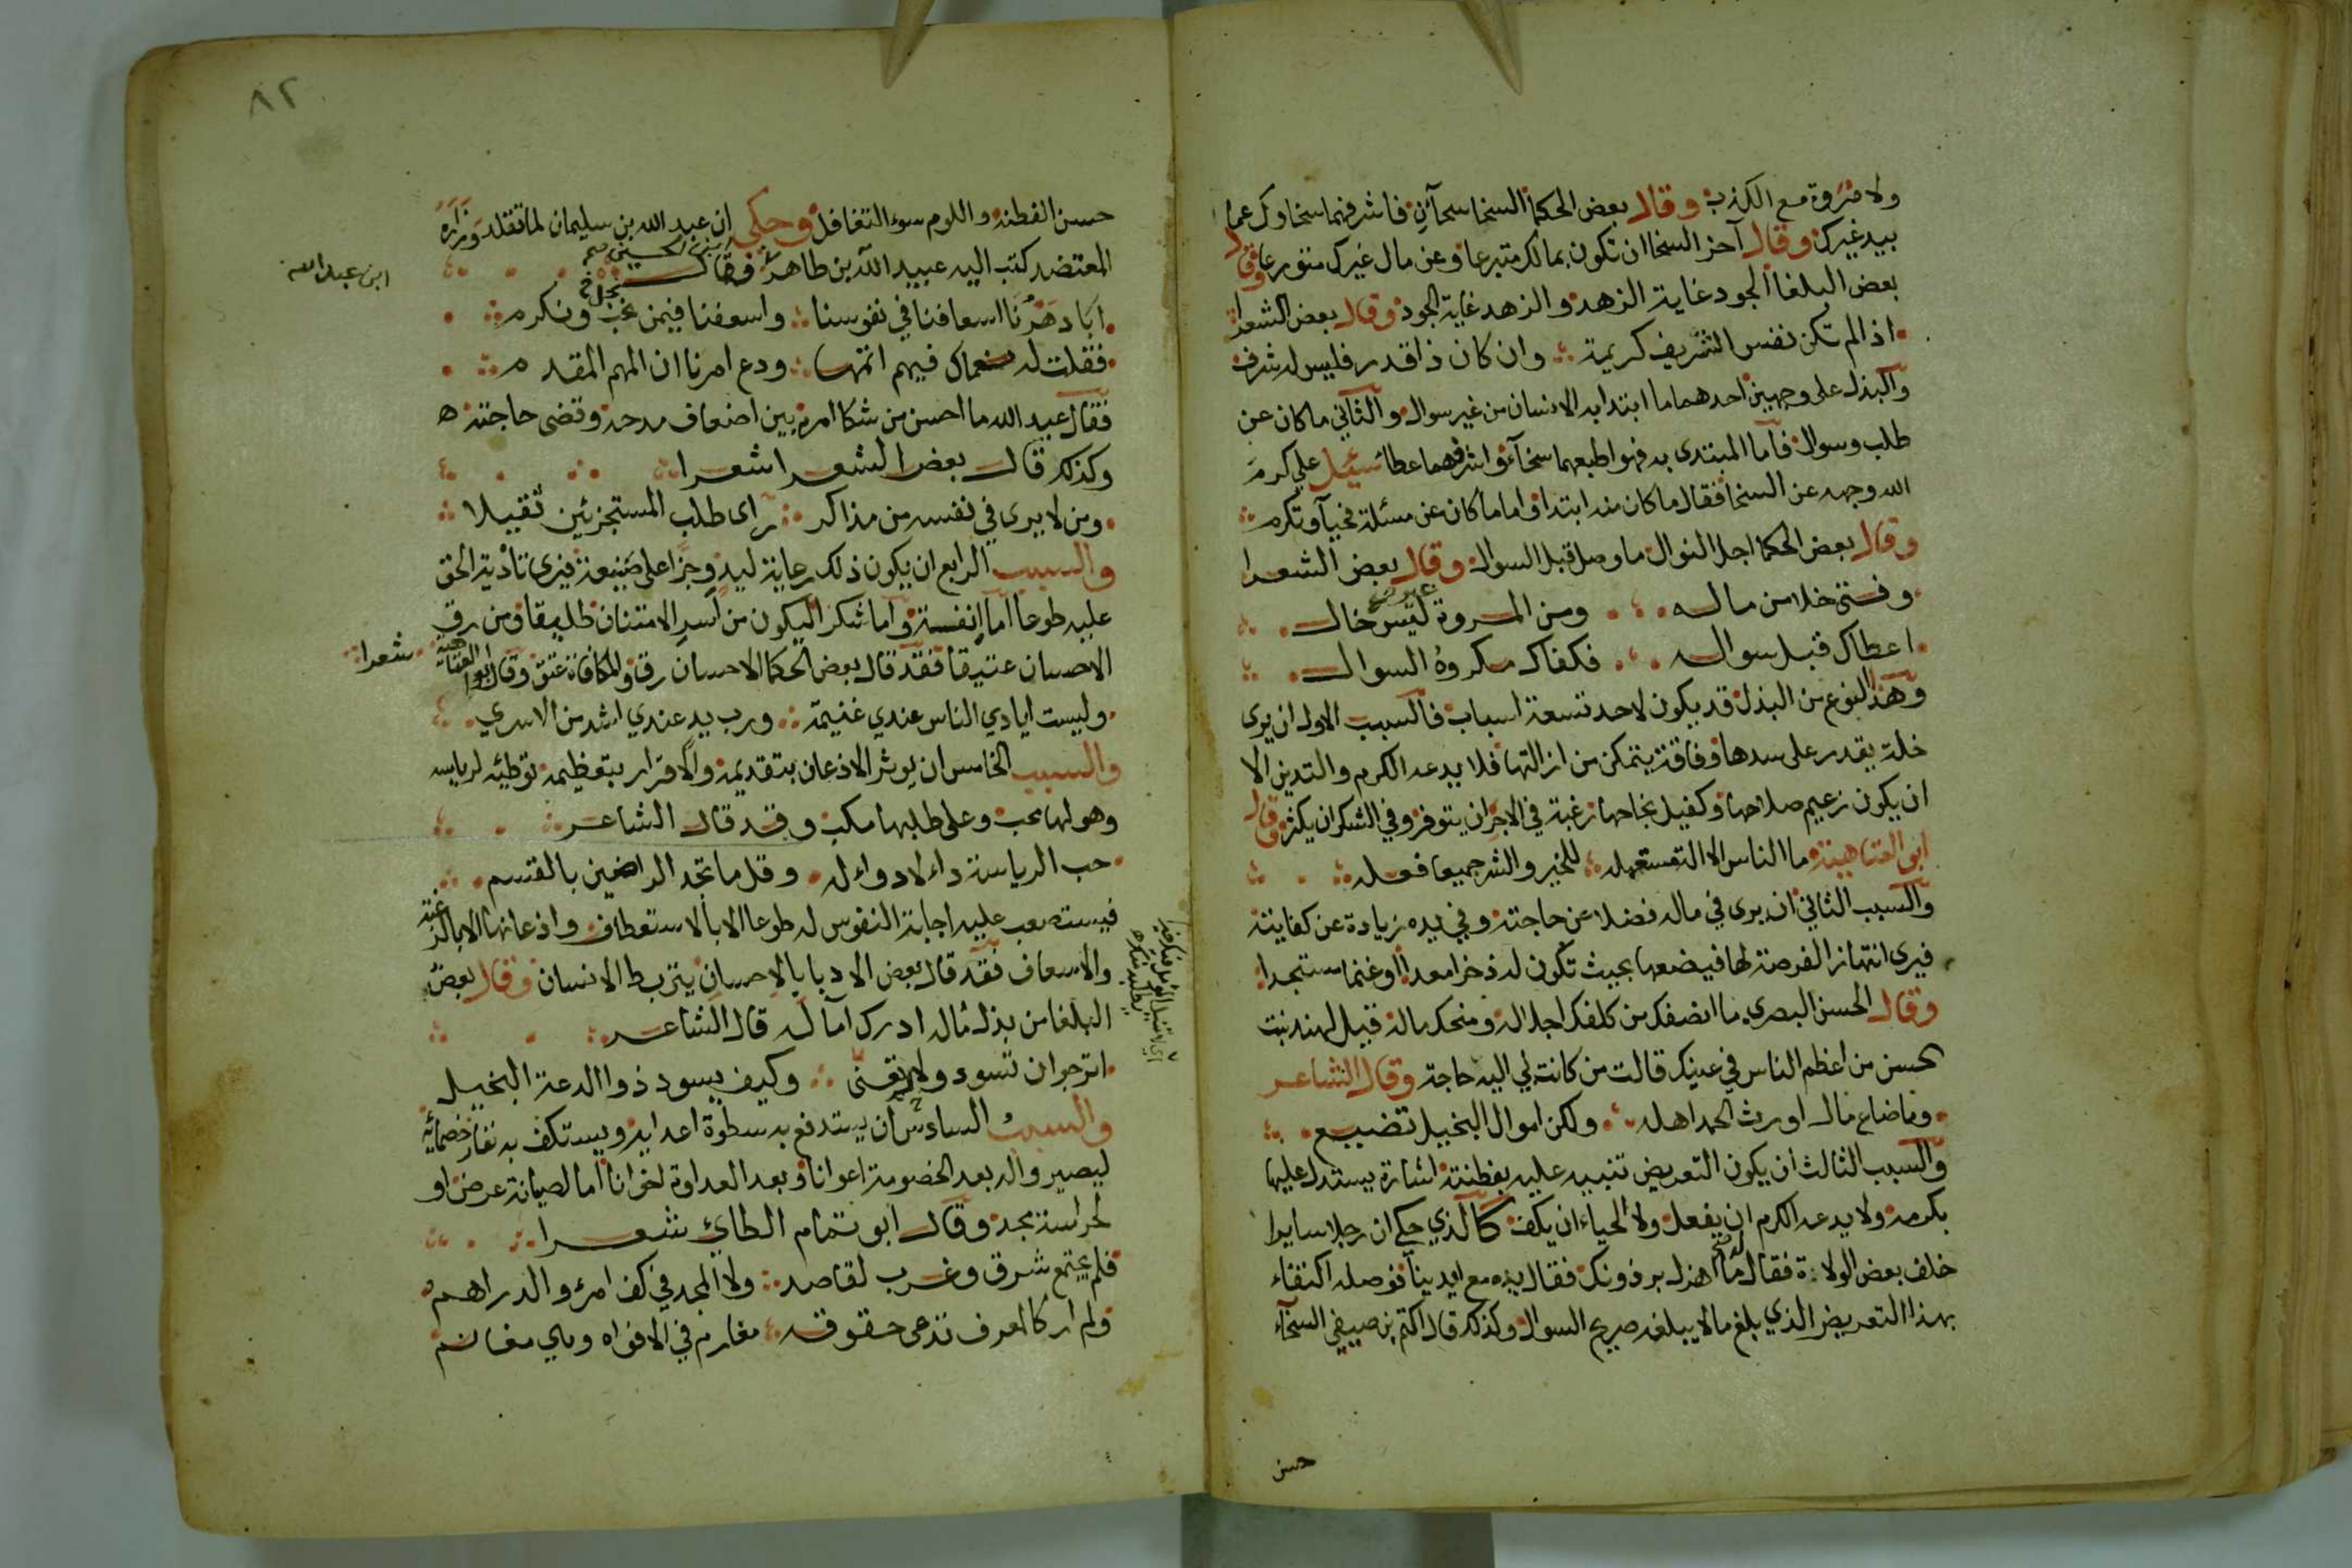 ولا مروة مع الكذب وقال بعض الحكما السخا سخآن فاشرفهما سخاوك عما
بيد غيرك وقال آخر السخا ان تكون بمالك متبرعا وعن مال غيرك متورعا وقال
بعض البلغا الجود غاية الزهد والزهد غاية الجود وقال بعض الشعرا
اذا لم تكن نفس الشريف كريمة وان كان ذا قدر فليس له شرف
والبذل على وجهين احدهما ما ابتدا به الانسان من غير سوال والثاني ما كان عن
طلب وسوال فاما المبتدى به فهو اطبعهما سخآء واشرفهما عطا سئيل علي كرم
الله وجهه عن السخا فقال ما كان منه ابتدا فاما ما كان عن مسئلة فحيآ وتكرم
وقال بعض الحكما اجل النوال ما وصل قبل السوال وقال بعض الشعرا
وفتى خلا من ماله ومن المروة غير خال
اعطاك قبل سواله فكفاك مكروه السوال
وهذا النوع من البذل قد يكون لاحد تسعة اسباب فالسبب الاول ان يرى
خلة يقدر على سدها وفاقة يتمكن من ازالتها فلا يدعه الكرم والتدين الا
ان يكون زعيم صلاحها وكفيل نجاحها رغبة في الاجر ان يتوفر وفي الشكر ان يكثر وقال
ابو العتاهية ما الناس الا آلة معتمله للخير والشر جميعا فعله
والسبب الثاني ان يرى في ماله فضلا عن حاجته وفي يده زيادة عن كفايته
فيرى انتهاز الفرصة لها فيضعها بحيث تكون له ذخرا معدا وغنما مستجدا
وقال الحسن البصري ما انصفك من كلفك اجلاله ومنحك ماله قيل لهند بنت
الحسن من اعظم الناس في عينيك قالت من كانت لي اليه حاجة وقال الشاعر
وما ضاع مال اورث الحمد اهله ولكن اموال البخيل تضيع
والسبب الثالث ان يكون التعريض تنبيه عليه بفطنة اشارة يستدل عليها
بكرمه ولا يدعه الكرم ان يغفل ولا الحياء ان يكف كالذي حكي ان رجلا سايرا
خلف بعض الولاة فقال له ما اهزل برذونك فقال يده مع ايدينا فوصله اكتفاء
بهذا التعريض الذي بلغ ما لا يبلغه صريح السوال وكذلك قال اكثم بن صيفي السخآء
حسن
٨٢
حسن الفطنة واللوم سوء التغافل وحكي ان عبيد الله بن سليمان لما تقلد وزارة
المعتضد كتب اليه عبيد الله بن طاهر فقال
ابن عبد الله
ابا دهرنا اسعافنا في نفوسنا واسعفنا فيمن نحب ونكرم
فقلت له نعماك فيهم اتمها ودع امرنا ان المهم المقدم
فقال عبيد الله ما احسن من شكا امره بين اضعاف مدحه وقضى حاجته ه
وكذلك قال بعض الشعرا شعرا
ومن لا يرى في نفسه من مذاكر رآى طلب المستجزئين ثقيلا
والسبب الرابع ان يكون ذلك رعاية ليد وجزا على صنيعة فيرى تادية الحق
عليه طوعا اما انفسة واما شكرا ليكون من اسر الامتنان طليقا ومن رق
الاحسان عتيقا فقد قال بعض الحكما الاحسان رق والمكافاة عتق وقال ابو العتاهية
شعرا
وليست ايادي الناس عندي غنيمة ورب يد عندي اشد من الاسري
والسبب الخامس ان يوثر الاذعان بتقديمه والاقرار بتعظيمه توطئه لرياسه
وهو لها محب وعلى طلبها مكب وقد قال الشاعر
حب الرياسة داء لا دواء له وقل ما تجد الراضين بالقسم
فيستصعب عليه اجابة النفوس له طوعا الا بالاستعطاف واذعانها الا بالرغبة
والاسعاف فقد قال بعض الادبا بالاحسان يرتبط الانسان وقال بعض
البلغا من بذل ماله ادرك آماله قال الشاعر
اترجو ان تسود ولا تعنى وكيف يسود ذوا الدعة البخيل
والسبب السادس ان يستدفع به سطوة اعدايه ويستكف به نفار خصمائه
ليصيروا له بعد الخصومة اعوانا وبعد العداوة اخوانا اما لصيانة عرض او
لحراسة مجد وقال ابو تمام الطائ شعرا
فلم يجتمع شرق وغرب لقاصد ولا المجد في كف امرؤ والدراهم
ولم ار كالمعرف تدعى حقوقه مغارم في الافواه وهي مغانم